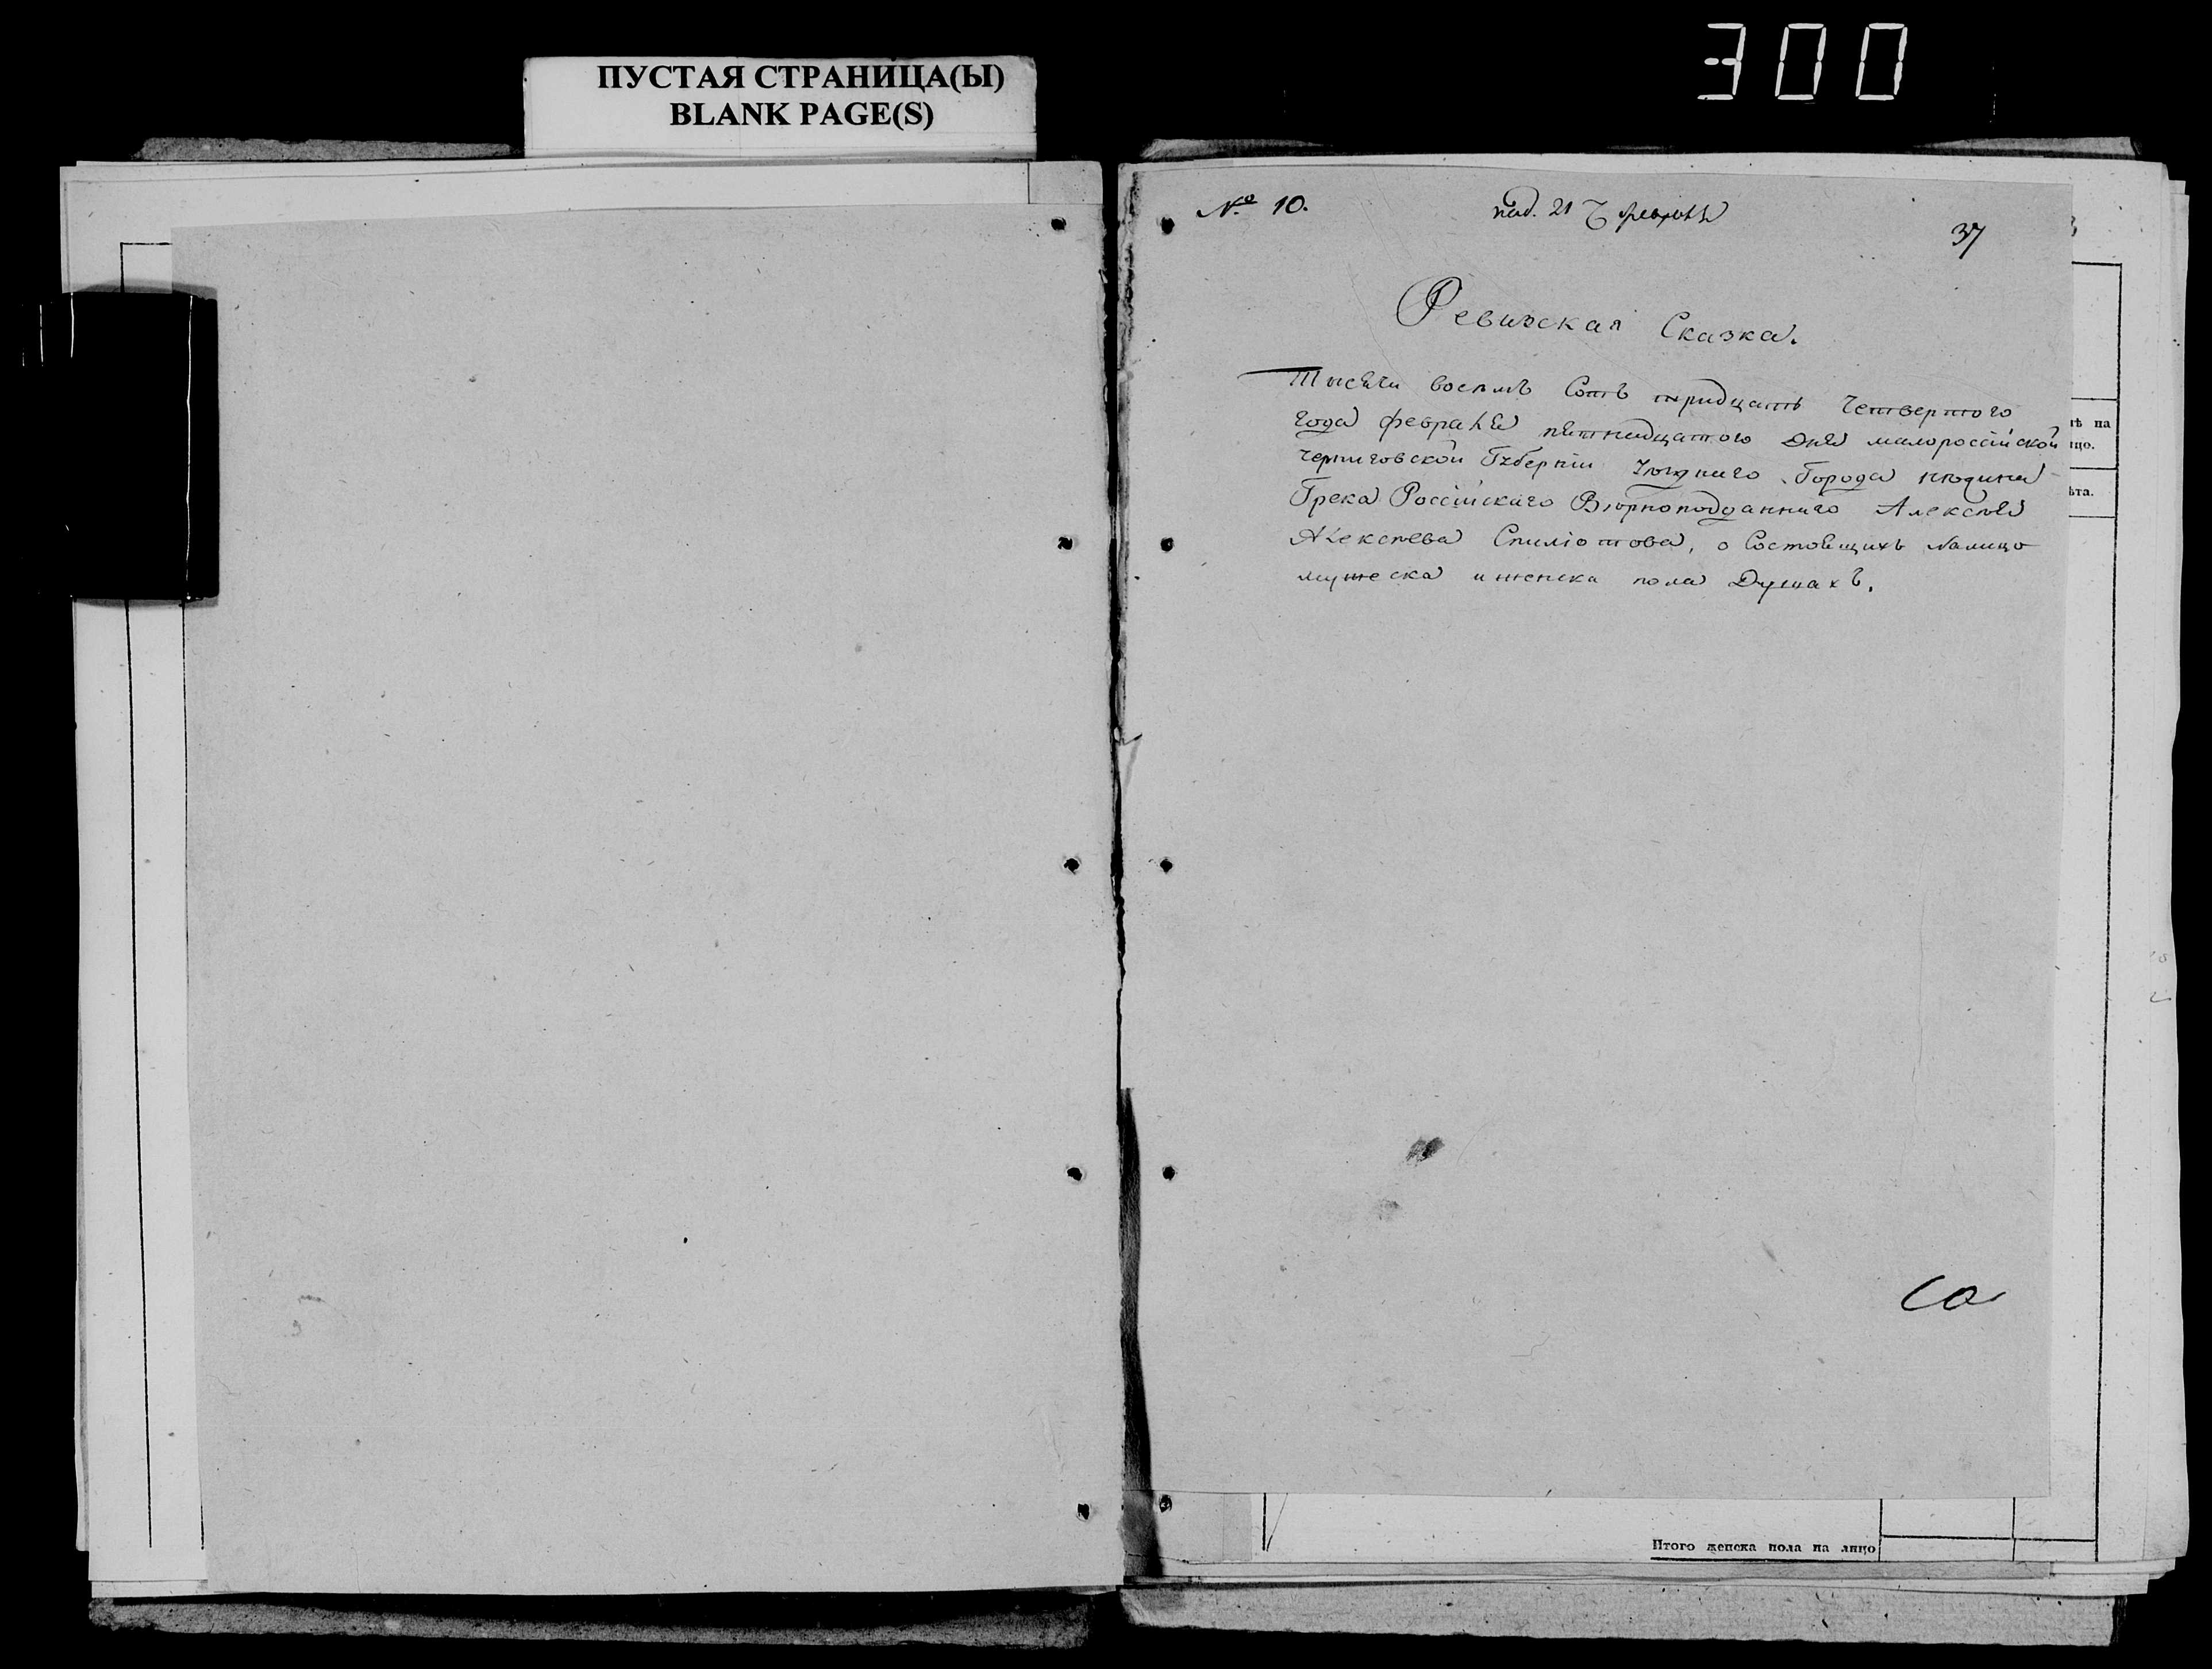 300
ПУСТАЯ СТРАНИЦА(Ы)
BLANK PAGE(S)
№ 10.
под. 21 Ч февраля
37
Ревизская Сказка.
Тысяча восемь Сотъ тридцать Четвертого
года февраля пятнадцатого Дня малороссійской
Черниговской Губерніи Города Нѣжина
Грека Россійскаго Вѣрноподданнаго Алексѣя
Алексѣева Спиліотова, о Состоящихъ Налицо
мужеска и женска пола Душахъ.
ѣ на
цо.
ѣта.
Со
Итого женска пола на лицо